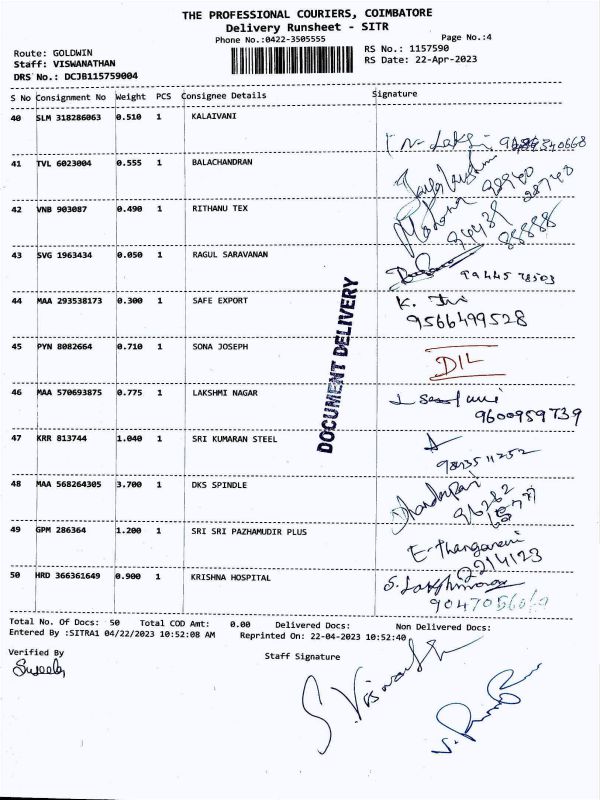 THE PROFESSIONAL COURIERS, COIMBATORE
Delivery Runsheet - SITR
Phone No.:0422-3505555
Page No.:4
Route: GOLDWIN
RS No.: 1157590
Staff: VISWANATHAN
RS Date: 22-Apr-2023
DRS No.: DCJB115759004
S No Consignment No Weight PCS Consignee Details Signature
40 SLM 318286063 0.510 1 KALAIVANI
41 TVL 6023004 0.555 1 BALACHANDRAN
42 VNB 903087 0.490 1 RITHANU TEX
43 SVG 1963434 0.050 1 RAGUL SARAVANAN
44 MAA 293538173 0.300 1 SAFE EXPORT
9566499528
45 PYN 8082664 0.710 1 SONA JOSEPH DIL
46 MAA 570693875 0.775 1 LAKSHMI NAGAR
9600959739
47 KRR 813744 1.040 1 SRI KUMARAN STEEL
48 MAA 568264305 3.700 1 DKS SPINDLE
49 GPM 286364 1.200 1 SRI SRI PAZHAMUDIR PLUS
2214123
50 HRD 366361649 0.900 1 KRISHNA HOSPITAL
DOCUMENT DELIVERY
Total No. Of Docs: 50 Total COD Amt: 0.00 Delivered Docs: Non Delivered Docs:
Entered By :SITRA1 04/22/2023 10:52:08 AM Reprinted On: 22-04-2023 10:52:40
Verified By
Staff Signature